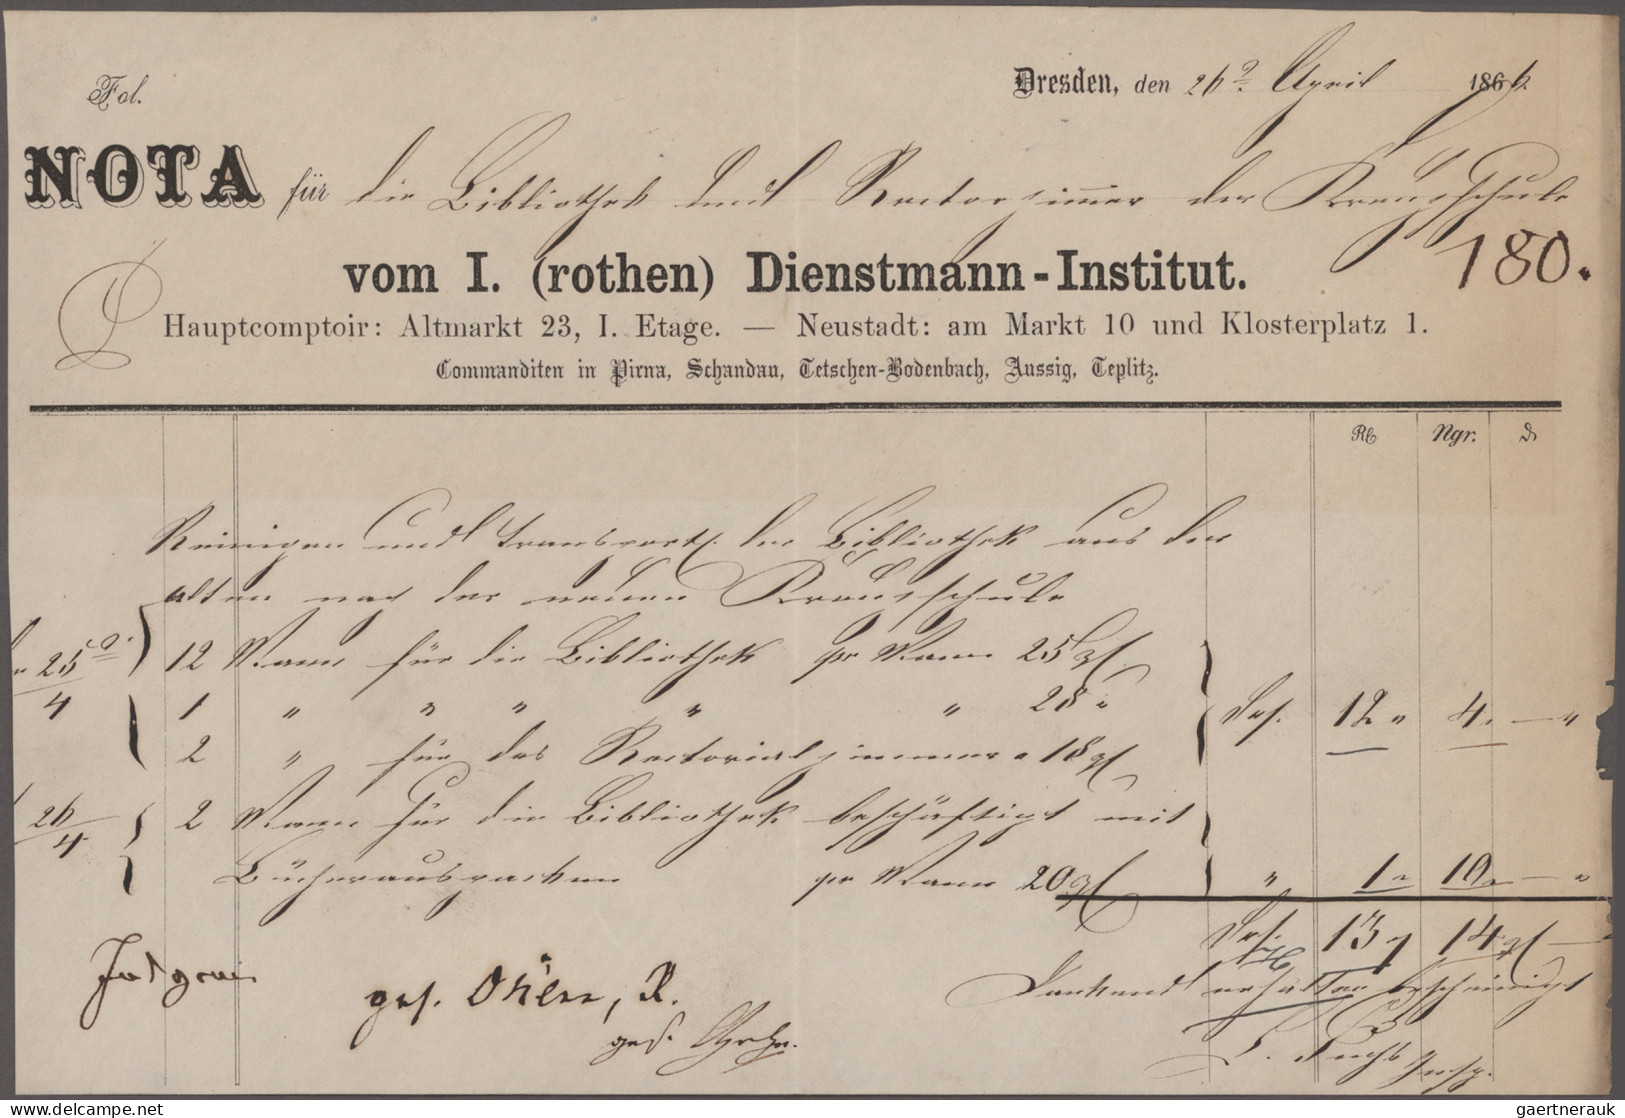 Fol.
Dresden, den 26t. April 1866.
NOTA für die Bibliothek und Rectorzimmer der Kreuzschule
180.
vom I. (rothen) Dienstmann-Institut.
Hauptcomptoir: Altmarkt 23, I. Etage. — Neustadt: am Markt 10 und Klosterplatz 1.
Commanditen in Pirna, Schandau, Tetschen-Bodenbach, Aussig, Teplitz.
Ngr.
Reinigen und Transport. der Bibliothek aus der
alten nach der neuen Kreuzschule
25/4 12 Mann für die Bibliothek pr Mann 25 gr
1 " " " " " 28 "
2 " für das Rectorialzimmer " 18 gr
12 " 4 " — "
26/4 2 Mann für die Bibliothek beschäftigt mit
Bücherauspacken pr Mann 20 gr " 1 " 10 " — "
13 14 —
Dankend erhalten bescheinigt
Fuchs Insp.